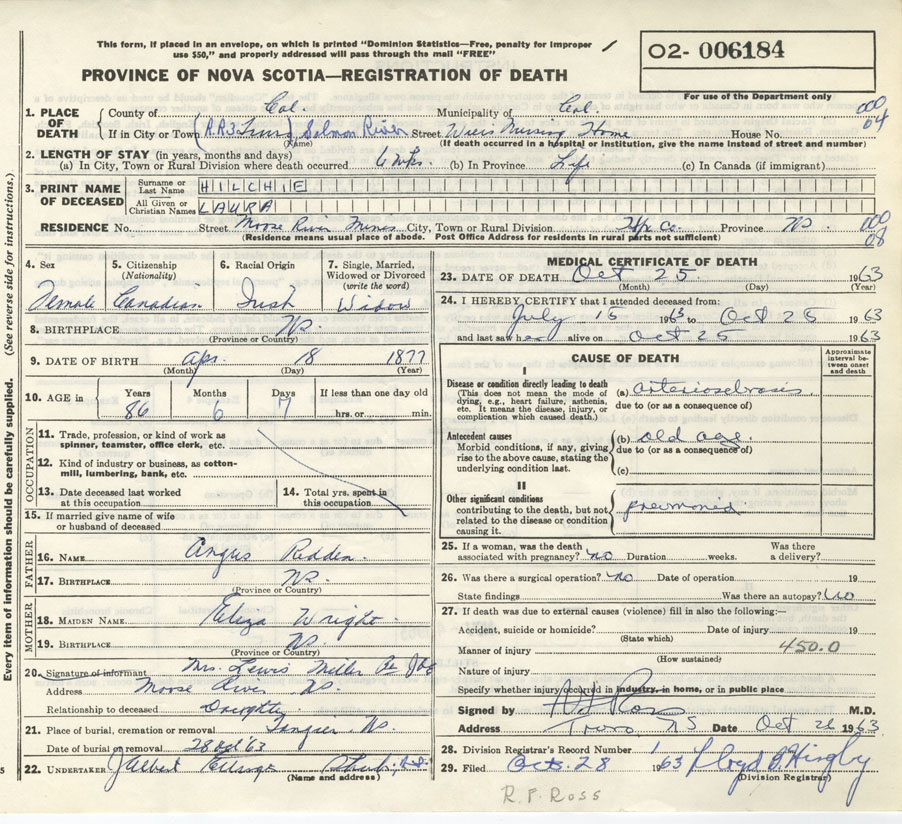 This form, if placed in an envelope, on which is printed "Dominion Statistics—Free, penalty for improper use $50," and properly addressed will pass through the mail "FREE"
O2- 006184
PROVINCE OF NOVA SCOTIA—REGISTRATION OF DEATH
For use of the Department only
1. PLACE OF DEATH
County of Col. Municipality of Col. 000
If in City or Town (R.R3 Truro) Salmon River Street Nursing Home House No. 04
(Name) (If death occurred in a hospital or institution, give the name instead of street and number)
2. LENGTH OF STAY (in years, months and days)
(a) In City, Town or Rural Division where death occurred 6 wks. (b) In Province Life (c) In Canada (if immigrant)
3. PRINT NAME OF DECEASED
Surname or Last Name HILCHIE
All Given or Christian Names LAURA
RESIDENCE No. Street Moose River Mines City, Town or Rural Division Hfx Co. Province NS. 000
(Residence means usual place of abode. Post Office Address for residents in rural parts not sufficient) 08
4. Sex Female
5. Citizenship (Nationality) Canadian
6. Racial Origin Irish
7. Single, Married, Widowed or Divorced (write the word) Widow
8. BIRTHPLACE NS.
(Province or Country)
9. DATE OF BIRTH Apr. 18 1877
(Month) (Day) (Year)
10. AGE in Years 86 Months 6 Days 7 If less than one day old hrs. or min.
OCCUPATION
11. Trade, profession, or kind of work as spinner, teamster, office clerk, etc.
12. Kind of industry or business, as cotton-mill, lumbering, bank, etc.
13. Date deceased last worked at this occupation
14. Total yrs. spent in this occupation
15. If married give name of wife or husband of deceased
FATHER
16. NAME Angus Redden.
17. BIRTHPLACE NS
(Province or Country)
MOTHER
18. MAIDEN NAME Eliza Wright.
19. BIRTHPLACE NS.
(Province or Country)
20. Signature of informant Mrs. Lewis Miller
Address Moose River NS.
Relationship to deceased Daughter
21. Place of burial, cremation or removal Tangier NS
Date of burial or removal 28 Oct '63
22. UNDERTAKER
(Name and address)
MEDICAL CERTIFICATE OF DEATH
23. DATE OF DEATH Oct 25. 1963
(Month) (Day) (Year)
24. I HEREBY CERTIFY that I attended deceased from:
July 15 1963 to Oct 25 1963
and last saw her alive on Oct 25 1963
CAUSE OF DEATH
Approximate interval between onset and death
I
Disease or condition directly leading to death (This does not mean the mode of dying, e.g., heart failure, asthenia, etc. It means the disease, injury, or complication which caused death.)
(a) arteriosclerosis
due to (or as a consequence of)
Antecedent causes Morbid conditions, if any, giving rise to the above cause, stating the underlying condition last.
(b) old age.
due to (or as a consequence of)
(c)
II
Other significant conditions contributing to the death, but not related to the disease or condition causing it.
25. If a woman, was the death associated with pregnancy? no Duration weeks. Was there a delivery?
26. Was there a surgical operation? no Date of operation 19
State findings Was there an autopsy? no
27. If death was due to external causes (violence) fill in also the following:—
Accident, suicide or homicide? Date of injury 19
(State which)
Manner of injury 450.0
(How sustained)
Nature of injury
Specify whether injury occurred in industry, in home, or in public place
Signed by Ross M.D.
Address Truro, NS Date Oct 26 1963
28. Division Registrar's Record Number 1
29. Filed Oct. 28 1963
(Division Registrar)
R. P. ROSS
Every item of information should be carefully supplied. (See reverse side for instructions.)
5